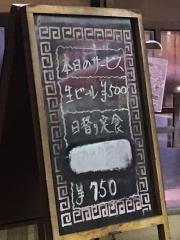 本日のサービス
生ビール ¥500
日替り定食
¥750